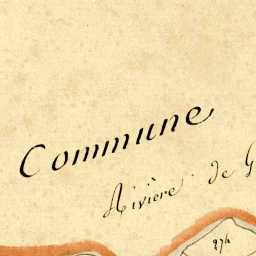 Commune
Rivière de G
274